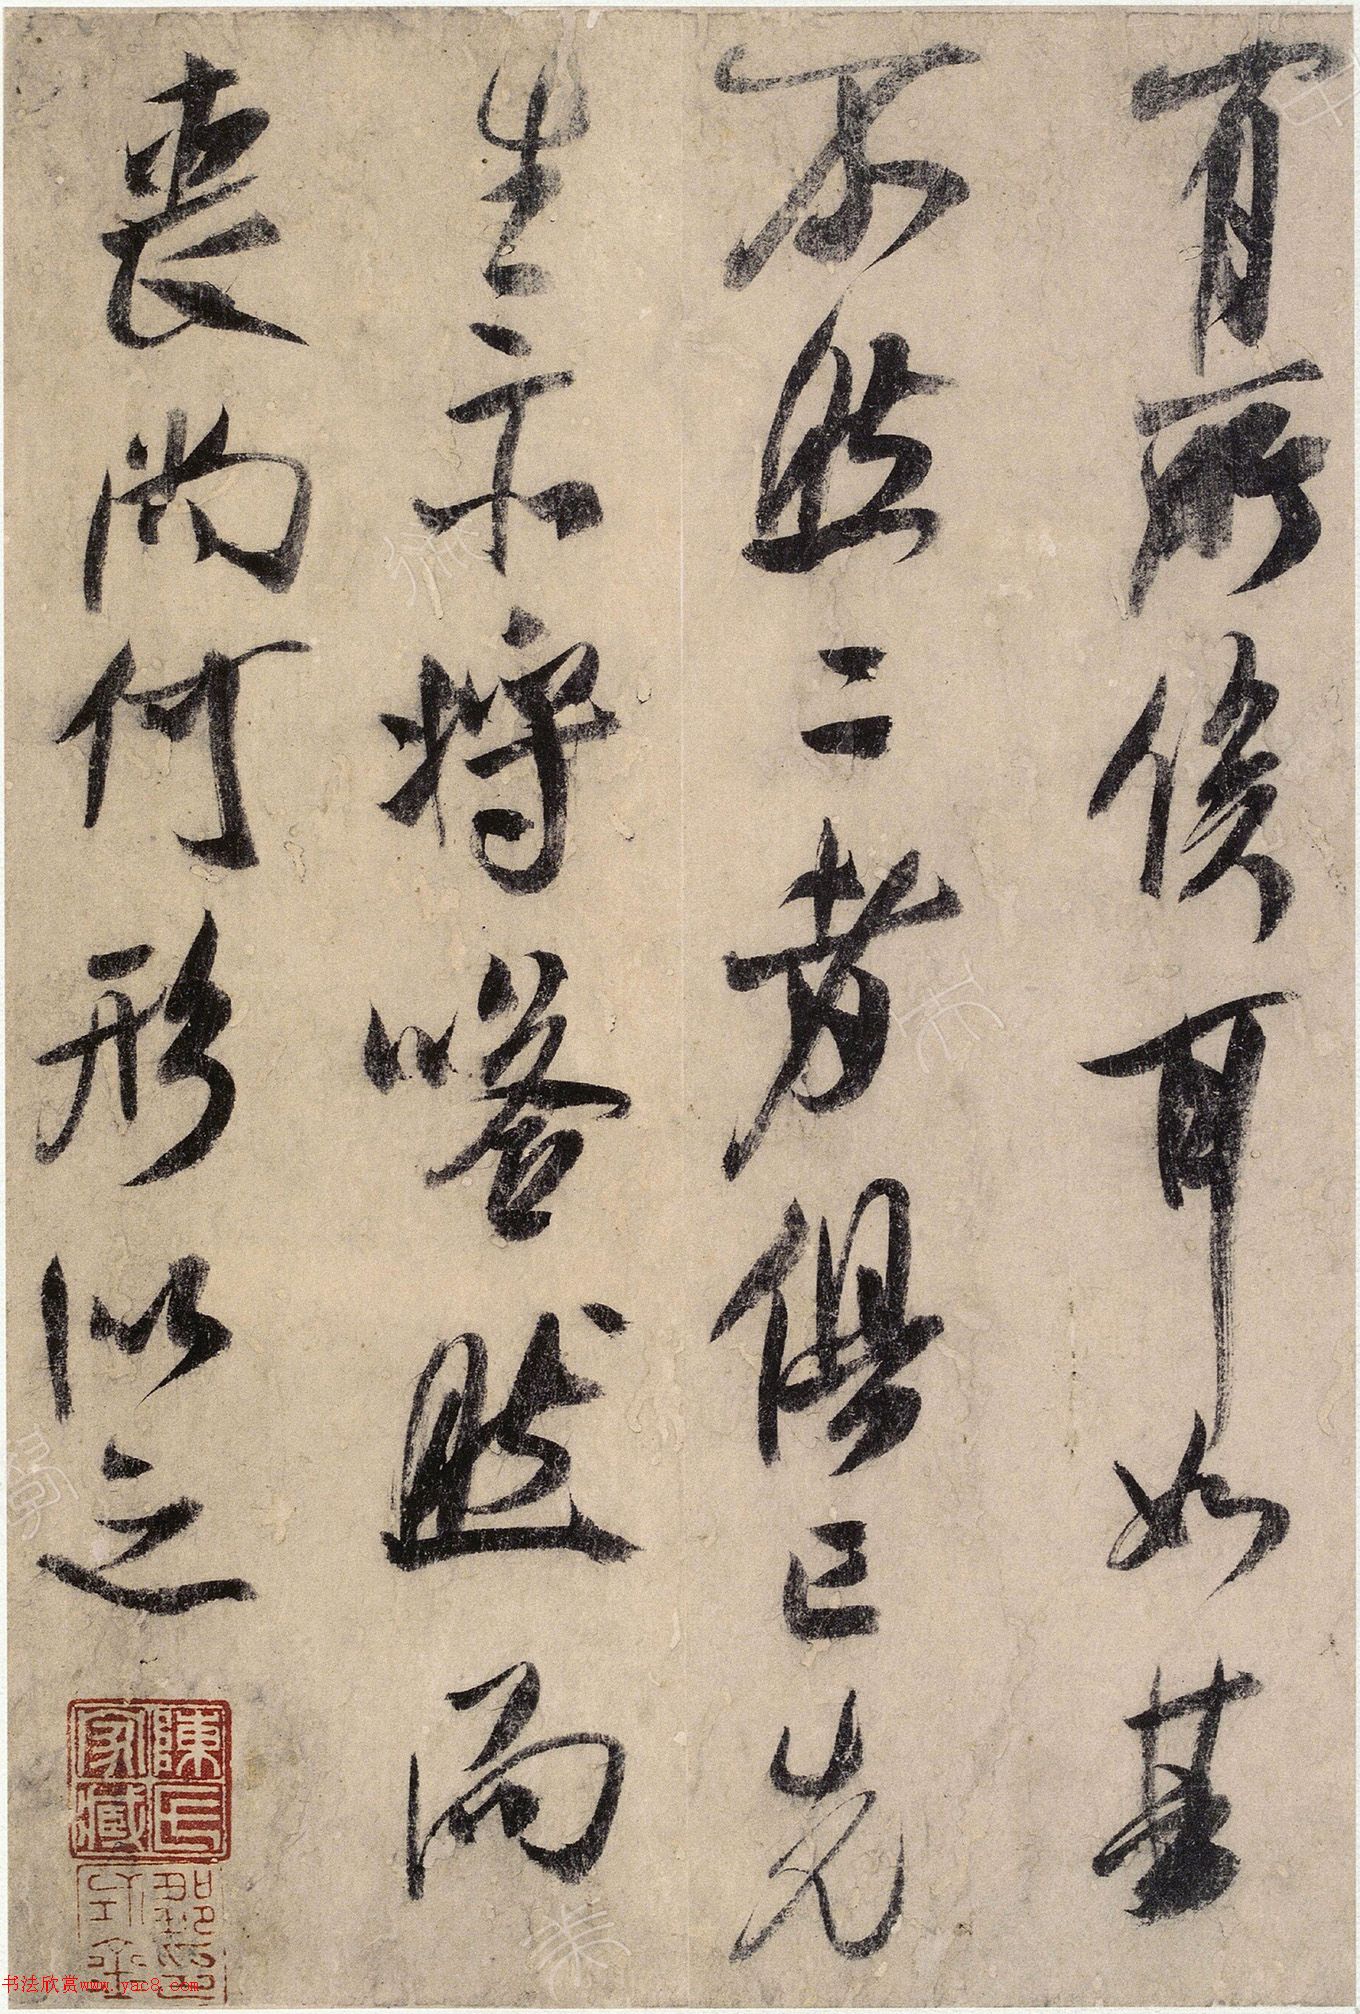 有所俟耳如其
不然二者俱已先
生亦将嗒然而
丧尚何形似之
陳氏家藏
书法欣赏www.yac8.com